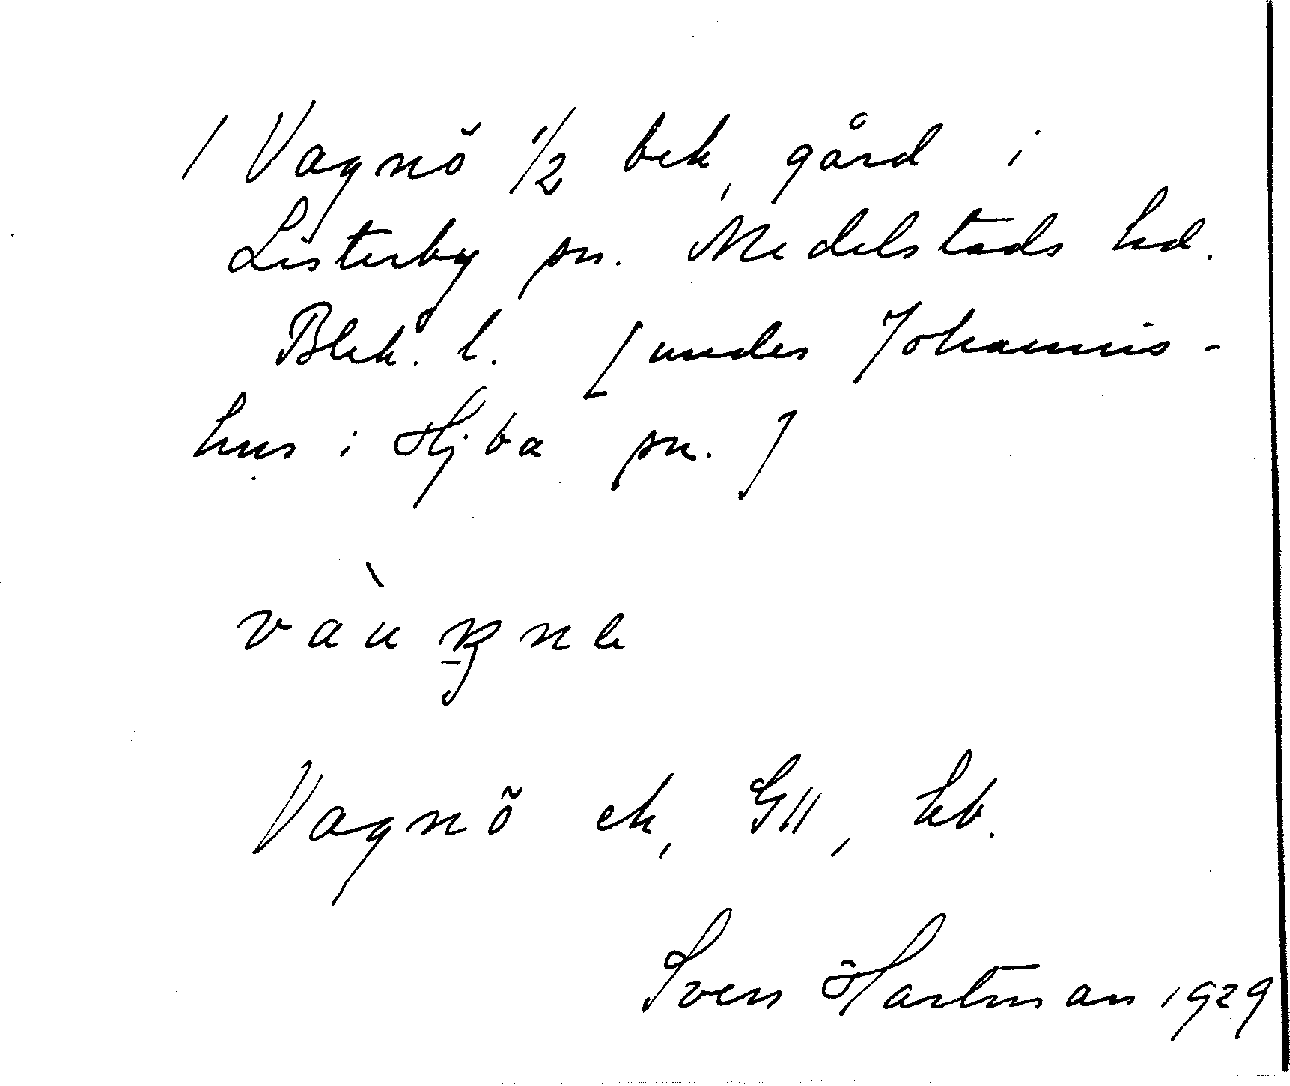 / Vagnö 1/2 bek, gård i
Listerby sn. Medelstads hd.
Blek. l. [under Johannis-
hus i Hjba sn.]
Vagnö ek, GII, hb.
Sven Hartman 1929